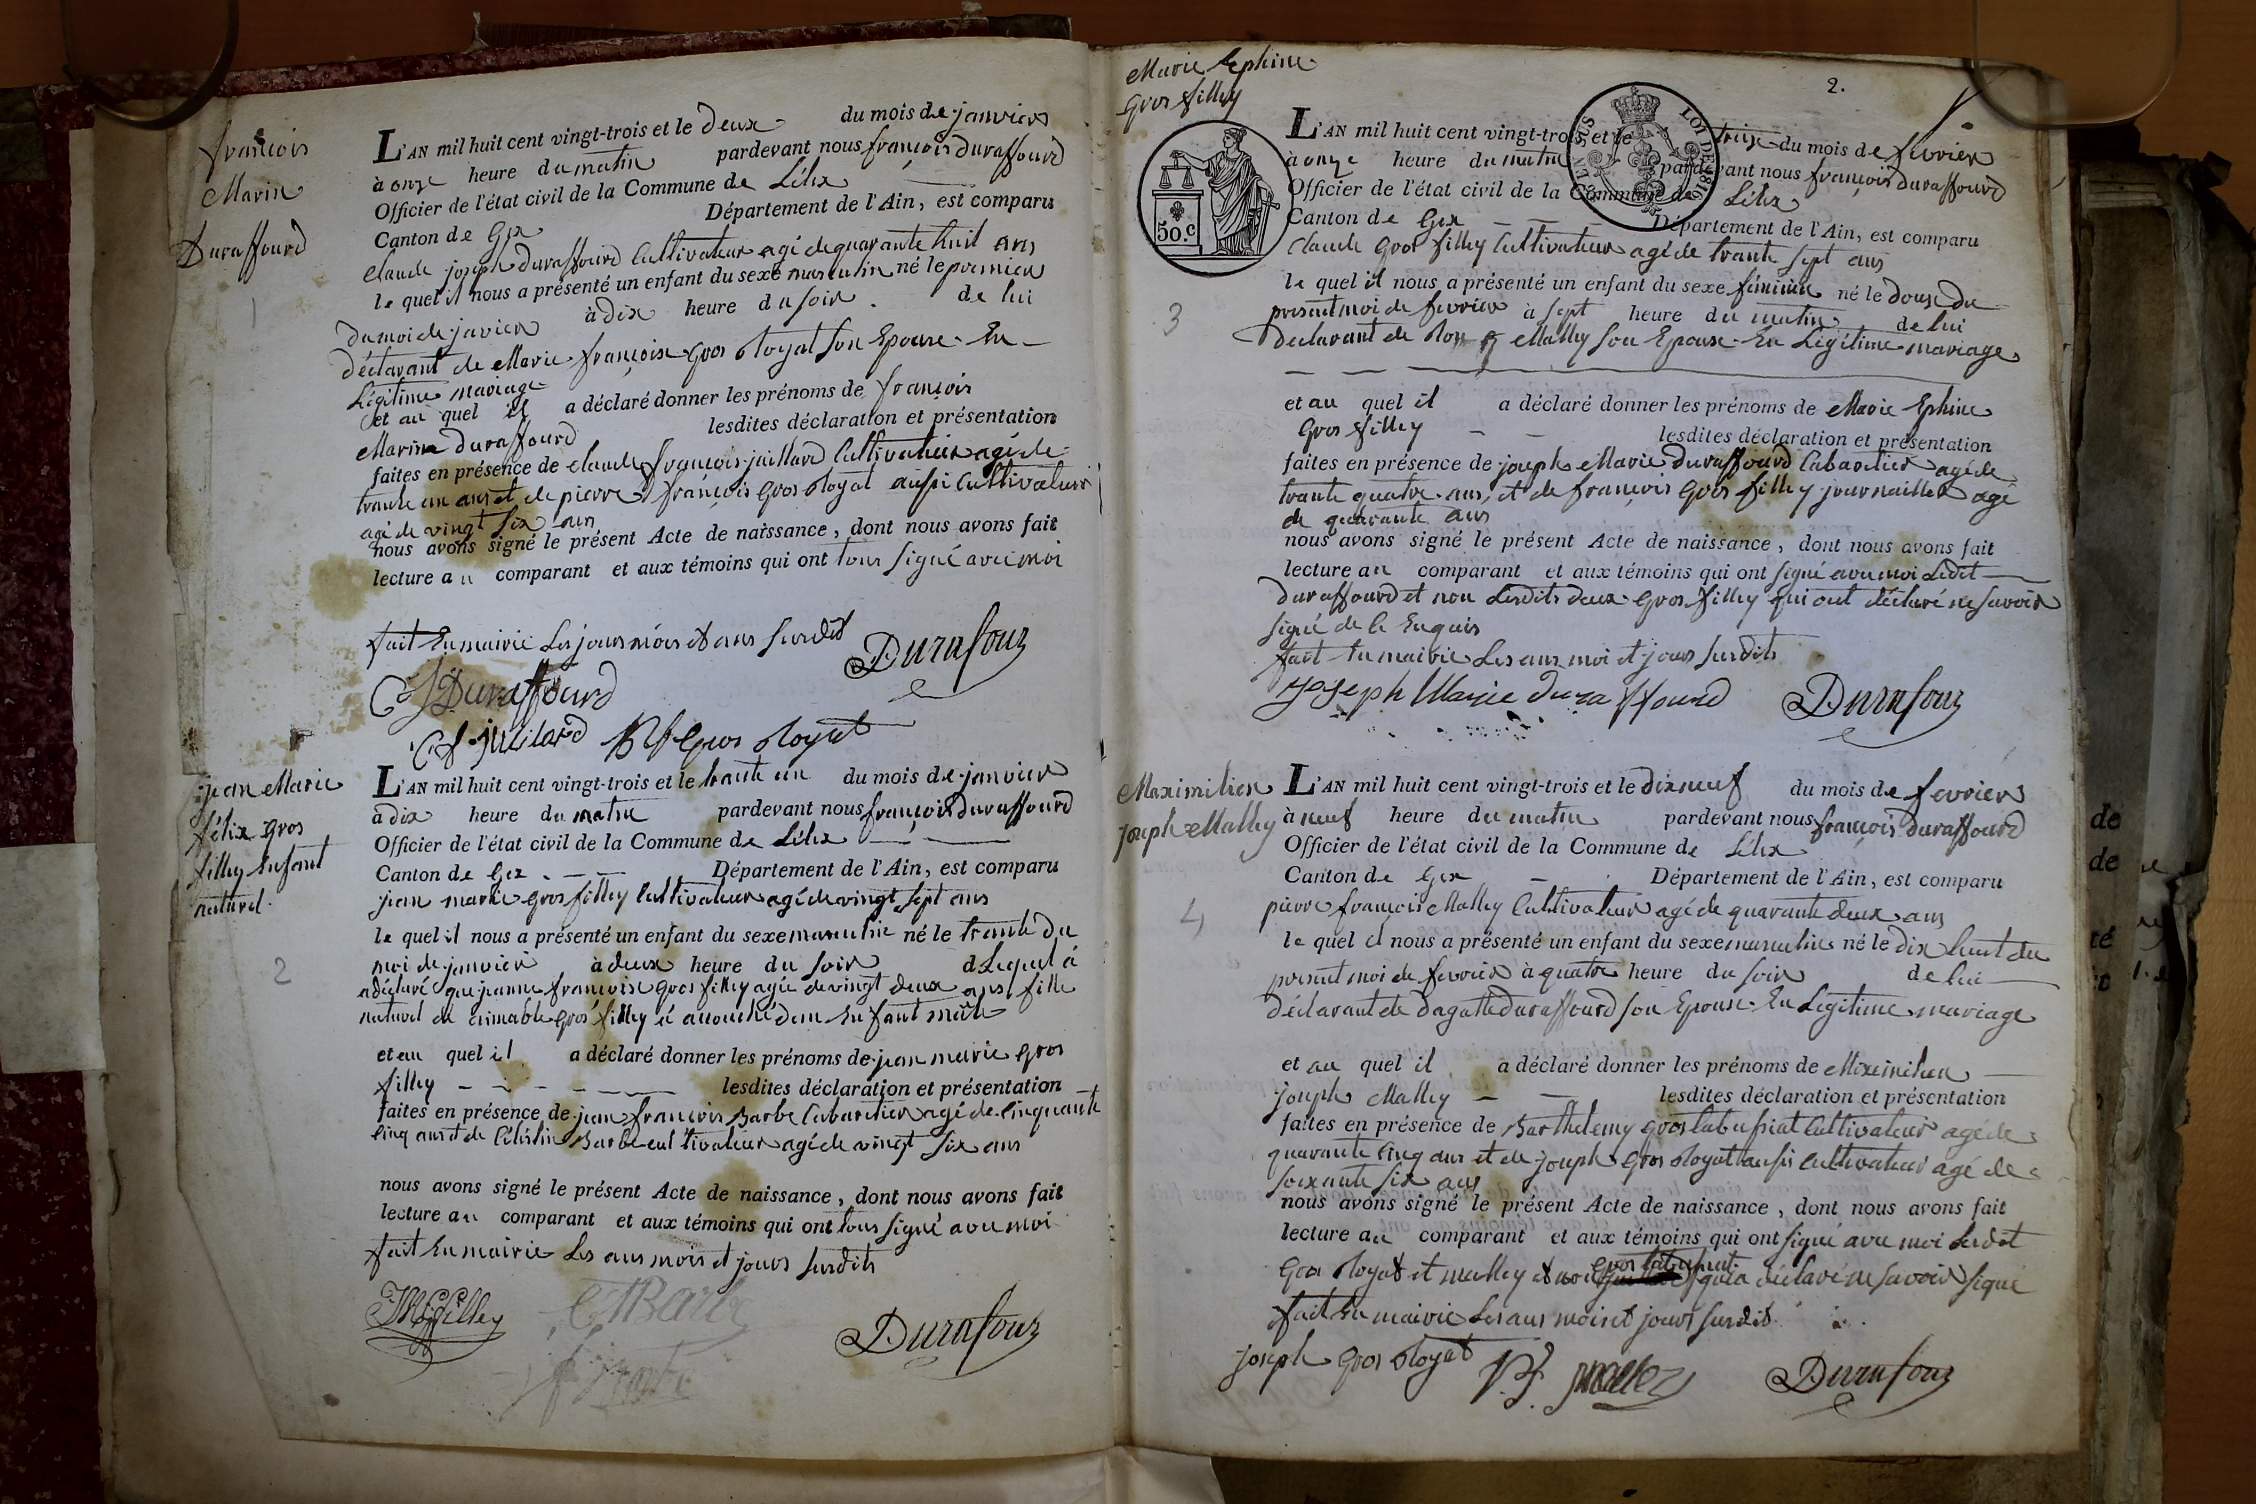 françois
Marin
Duraffourd
1
L'AN mil huit cent vingt-trois et le deux du mois de janvier
à onze heure du matin pardevant nous françois duraffourd
Officier de l'état civil de la Commune de Lélex
Canton de Gex Département de l'Ain, est comparu
Claude joseph duraffourd Cultivateur agé de quarante huit ans
le quel il nous a présenté un enfant du sexe masculin né le premier
du moi de javier à dix heure du soir de lui
déclarant de Marie françoise gros Royat son Epouse En
Légitime mariage
et au quel il a déclaré donner les prénoms de françois
Marin duraffourd lesdites déclaration et présentation
faites en présence de Claude françois juillard Cultivateur agé de
trante un ans et de pierre françois gros Royat aussi Cultivateur
agé de vingt six ans
nous avons signé le présent Acte de naissance, dont nous avons fait
lecture au comparant et aux témoins qui ont tous signé avec moi
fait En mairie Les jours mois et ans surdit
Durafour
CJ Duraffourd
Cf juillard Pf Gros Royat
jean Marie
félix gros
filley Enfant
naturel
2
L'AN mil huit cent vingt-trois et le trante un du mois de janvier
à dix heure du matin pardevant nous françois duraffourd
Officier de l'état civil de la Commune de Lélex
Canton de Gex Département de l'Ain, est comparu
jean marie gros filley Cultivateur agé de vingt sept ans
le quel il nous a présenté un enfant du sexe masculin né le trante du
moi de janvier à deux heure du soir Lequel à
adéclaré que jeanne françoise gros filley agée de vingt deux ans fille
naturel de aimable gros filley à accouché d'un Enfant mâle
et au quel il a déclaré donner les prénoms de jean marie gros
filley lesdites déclaration et présentation
faites en présence de jean françois Barbe Cabaretier agé de Cinquante
Cinq ans et de Céléstin Barbe cultivateur agé de vingt six ans
nous avons signé le présent Acte de naissance, dont nous avons fait
lecture au comparant et aux témoins qui ont tous signé avec moi
fait En mairie Les ans mois et jours surdits
JMGfilley CABarbe
Durafour
jf Barbe
2.
Marie Ephine
gros filley
50.c
LOI DE 1816
3
L'AN mil huit cent vingt-trois et le treize du mois de fevrier
à onze heure du matin pardevant nous françois duraffourd
Officier de l'état civil de la Commune de Lélex
Canton de Gex Département de l'Ain, est comparu
Claude gros filley Cultivateur agé de trante sept ans
le quel il nous a présenté un enfant du sexe féminin né le douze du
présent moi de fevrier à sept heure du matin de lui
Déclarant de Malley son Epouse En Légitime mariage
et au quel il a déclaré donner les prénoms de Marie Ephine
Gros filley lesdites déclaration et présentation
faites en présence de joseph Marie duraffourd Cabaretier agé de
trante quatre ans, et de françois gros filley journaillier agé
de quarante ans
nous avons signé le présent Acte de naissance, dont nous avons fait
lecture au comparant et aux témoins qui ont signé avec moi Ledit
duraffourd et non Lesdits deux gros filley qui ont déclaré ne savoir
signé de ce Enquis
fait En mairie Les ans moi et jours surdits
joseph Marie duraffourd Durafour
Maximilien
joseph Malley
4
L'AN mil huit cent vingt-trois et le dix neuf du mois de fevrier
à neuf heure du matin pardevant nous françois duraffourd
Officier de l'état civil de la Commune de Lélex
Canton de Gex Département de l'Ain, est comparu
pierre françois Malley Cultivateur agé de quarante deux ans
le quel il nous a présenté un enfant du sexe masculin né le dix huit du
présent moi de fevrier à quatre heure du soir de lui
déclarant de dagatte duraffourd son Epouse En Legitime mariage
et au quel il a déclaré donner les prénoms de Miximilien
joseph Malley lesdites déclaration et présentation
faites en présence de Barthelemy gros labussiat Cultivateur agé de
quarante Cinq ans et de joseph gros Royat aussi Cultivateur agé de
soixante six ans
nous avons signé le présent Acte de naissance, dont nous avons fait
lecture au comparant et aux témoins qui ont signé avec moi Lesdit
Gros Royat et malley et non gros labussiat qui a déclaré ne savoir signé
fait En mairie Les ans mois et jours surdit
joseph gros Royat Pf malley Durafour
de
de